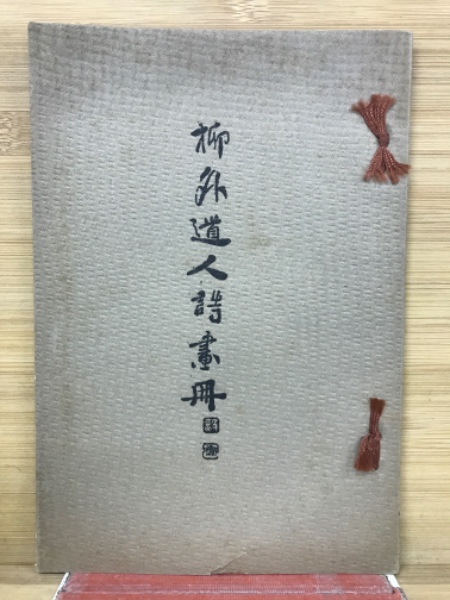 柳外道人詩畫冊